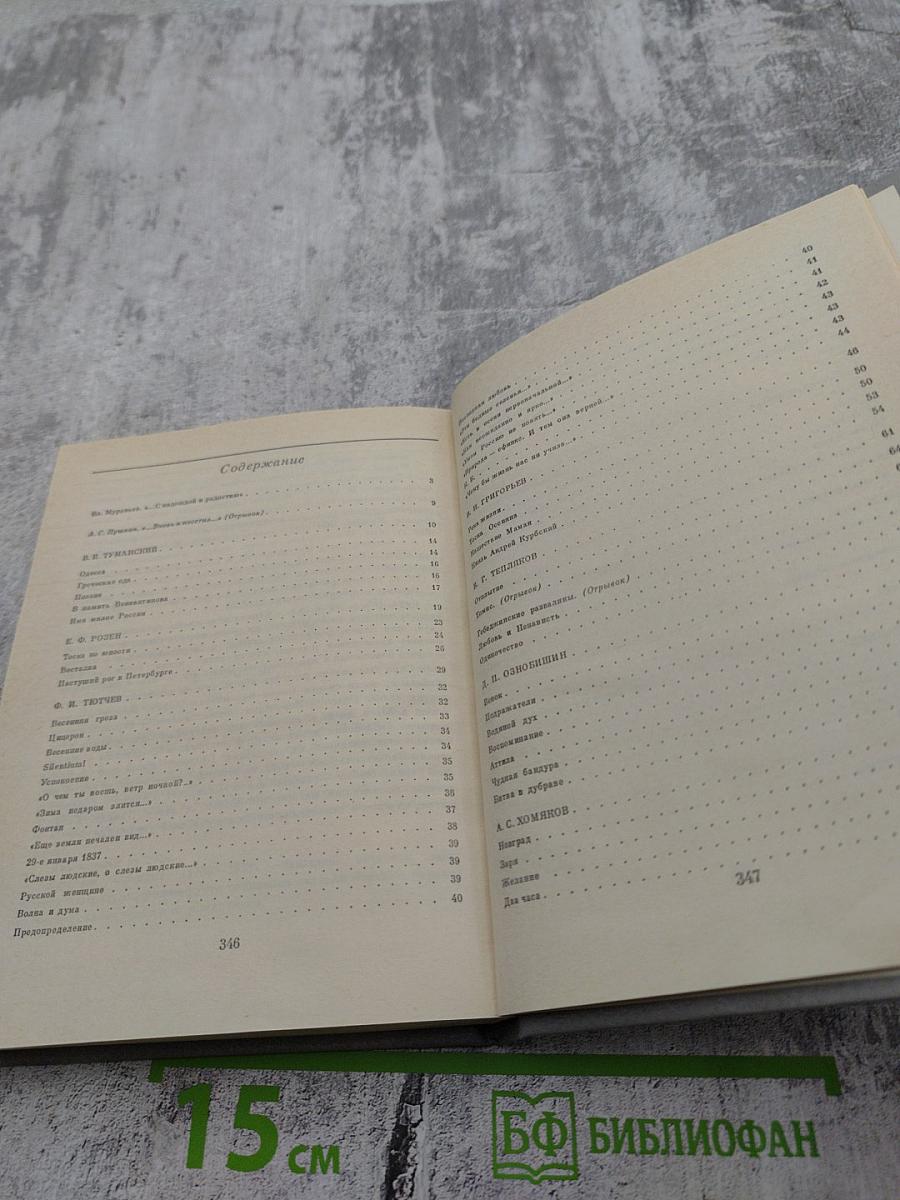 Содержание
Вл. Муравьев. «...С надеждой и радостью» 3
А. С. Пушкин. «...Вновь я посетил...» (Отрывок) 9
В. И. ТУМАНСКИЙ 10
Одесса 14
Греческая ода 14
Поэзия 16
В память Веневитинова 16
Имя милое России 17
Е. Ф. РОЗЕН 19
Тоска по юности 23
Весталка 24
Пастуший рог в Петербурге 26
Ф. И. ТЮТЧЕВ 29
Весенняя гроза 32
Цицерон 32
Весенние воды 33
Silentium! 34
Успокоение 34
«О чем ты воешь, ветр ночной?..» 35
«Зима недаром злится...» 35
Фонтан 36
«Еще земли печален вид...» 37
29-е января 1837 38
«Слезы людские, о слезы людские...» 39
Русской женщине 39
Волна и дума 39
Предопределение 40
346
Последняя любовь 40
«Эти бедные селенья...» 41
«Есть в осени первоначальной...» 41
«Так неожиданно и ярко...» 42
«Умом Россию не понять...» 43
«Природа — сфинкс. И тем она верней...» 43
К. Б. 43
«Чему бы жизнь нас ни учила...» 44
В. Н. ГРИГОРЬЕВ 46
Река жизни 50
Тоска Осенина 50
Нашествие Мамая 53
Князь Андрей Курбский 54
В. Г. ТЕПЛЯКОВ 61
Отплытие 64
Томис. (Отрывок)
Гебеджинские развалины. (Отрывок)
Любовь и Ненависть
Одиночество
Д. П. ОЗНОБИШИН
Венок
Подражатели
Водяной дух
Воспоминание
Аттила
Чудная бандура
Битва в дубраве
А. С. ХОМЯКОВ
Новград
Заря
Желание
Два часа
347
15 см
БФ БИБЛИОФАН